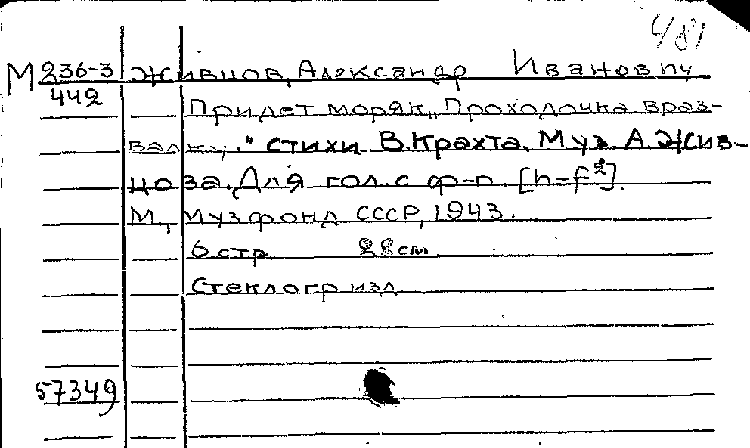 4/81
М 236-3 Живцов, Александр Иванович
442
Придет моряк, "Проходочка враз-
валку." Стихи В. Крахта. Муз. А. Жив-
цова. Для гол. с ф-п. [h-f²].
М., Музфонд СССР, 1943.
6 стр 28 см
Стеклогр изд
57349